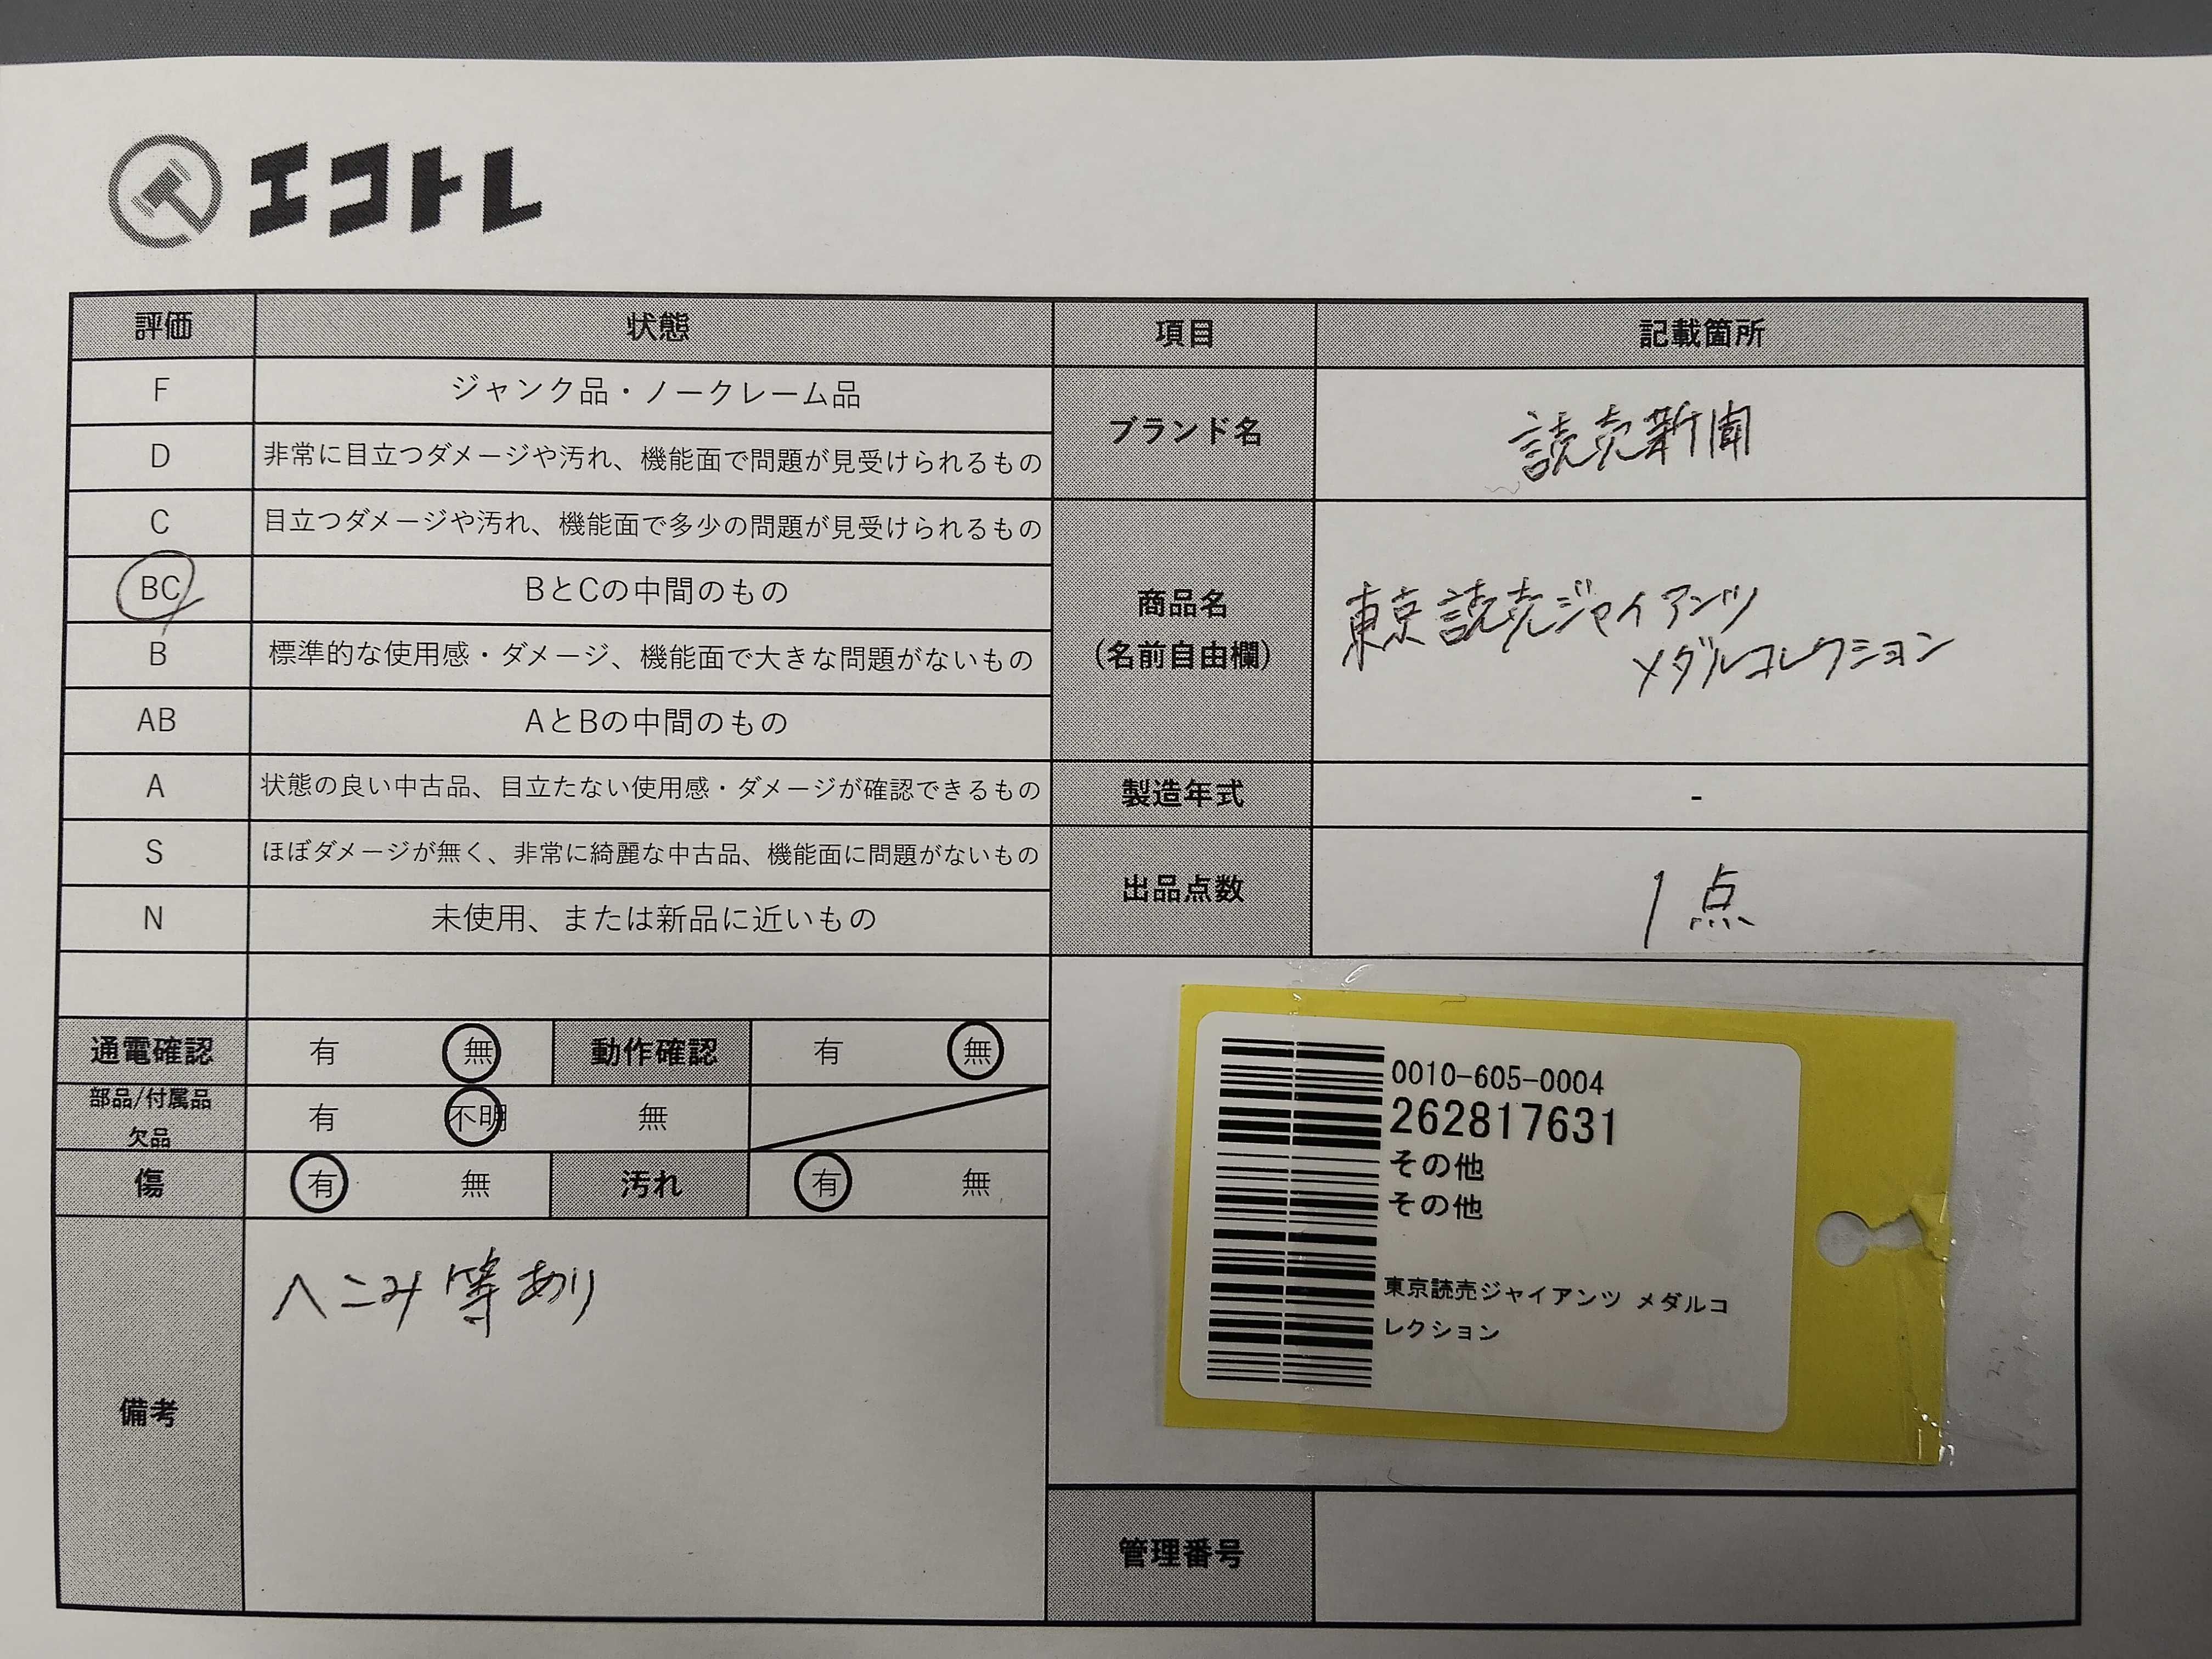 エコトレ
評価 状態 項目 記載箇所
F ジャンク品・ノークレーム品
D 非常に目立つダメージや汚れ、機能面で問題が見受けられるもの
C 目立つダメージや汚れ、機能面で多少の問題が見受けられるもの
BC BとCの中間のもの
B 標準的な使用感・ダメージ、機能面で大きな問題がないもの
AB AとBの中間のもの
A 状態の良い中古品、目立たない使用感・ダメージが確認できるもの
S ほぼダメージが無く、非常に綺麗な中古品、機能面に問題がないもの
N 未使用、または新品に近いもの
ブランド名 読売新聞
商品名
(名前自由欄)
東京読売ジャイアンツ
メダルコレクション
製造年式 -
出品点数 1点
通電確認 有 無 動作確認 有 無
部品/付属品
欠品
有 不明 無
傷 有 無 汚れ 有 無
備考
へこみ等あり
0010-605-0004
262817631
その他
その他
東京読売ジャイアンツ メダルコ
レクション
管理番号